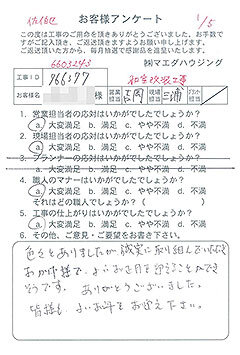 佐伯区
お客様アンケート
1/5
この度は工事のご用命を頂きありがとうございました。お手数で
すがご記入頂き、ご返送頂きますようお願い申し上げます。
ご返送頂いた方から、毎月抽選で感謝品を進呈いたします。
6603243
㈱マエダハウジング
工事ID
766377
和室改装工事
お客様名
営業担当
吉岡
現場担当
三浦
プランナー担当
1. 営業担当者の応対はいかがでしたでしょうか?
a. 大変満足 b. 満足 c. やや不満 d. 不満
2. 現場担当者の応対はいかがでしたでしょうか?
a. 大変満足 b. 満足 c. やや不満 d. 不満
3. プランナーの応対はいかがでしたでしょうか?
a. 大変満足 b. 満足 c. やや不満 d. 不満
4. 職人のマナーはいかがでしたでしょうか?
a. 大変満足 b. 満足 c. やや不満 d. 不満
それはどの職人でしょうか?( )
5. 工事の仕上がりはいかがでしたでしょうか?
a. 大変満足 b. 満足 c. やや不満 d. 不満
6. その他、ご意見・ご要望をお書き下さい。
色々とありましたが誠実に取り組んでいただき
おかげ様で、よいお正月を迎えることができ
そうです。ありがとうございました。
皆様も、よいお年をお迎え下さい。